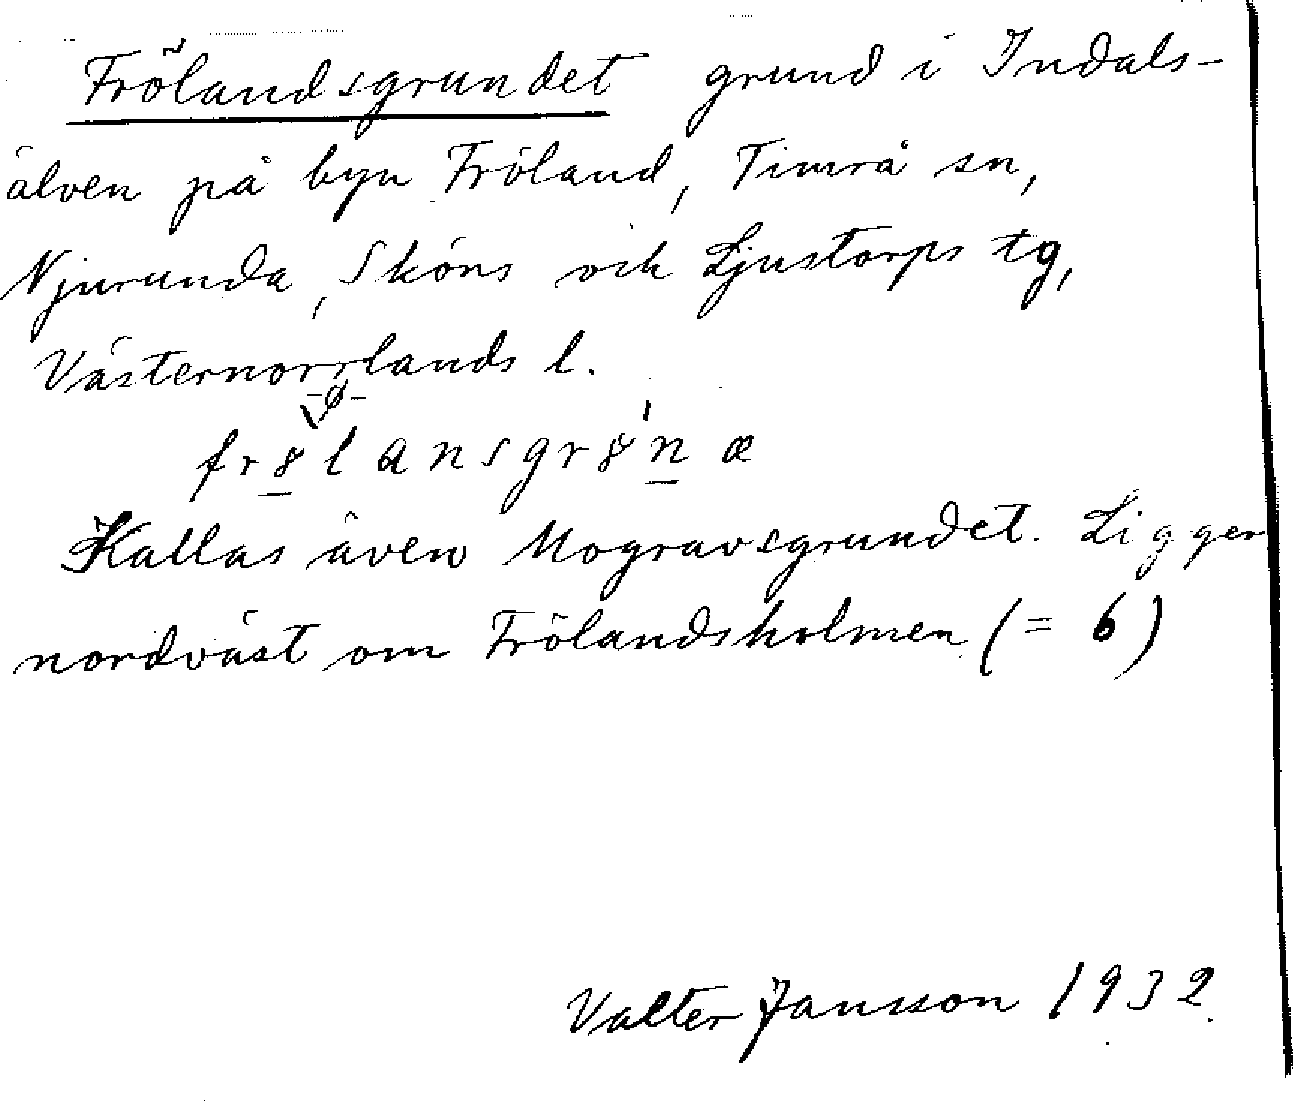 Frölandsgrundet grund i Indals-
älven på byn Fröland, Timrå sn,
Njurunda, Sköns och Ljustorps tg,
Västernorrlands l.
-ø-
fr8lansgr8'næ
Kallas även Mogravsgrundet. Ligger
nordväst om Frölandsholmen (= 6)
Valter Jansson 1932.